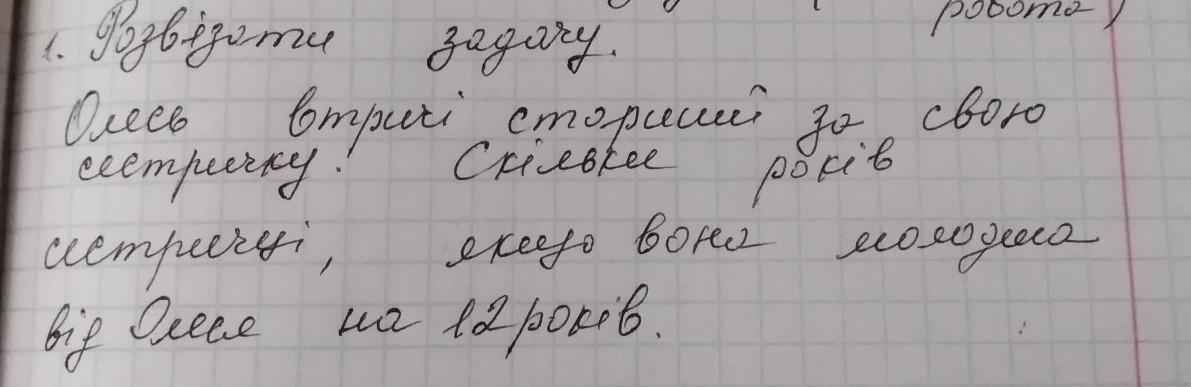 робота)
1. Розвізати задачу.
Олесь втричі старший за свою
сестричку. Скільки років
сестричці, якщо вона молодша
від Олеся на 12 років.